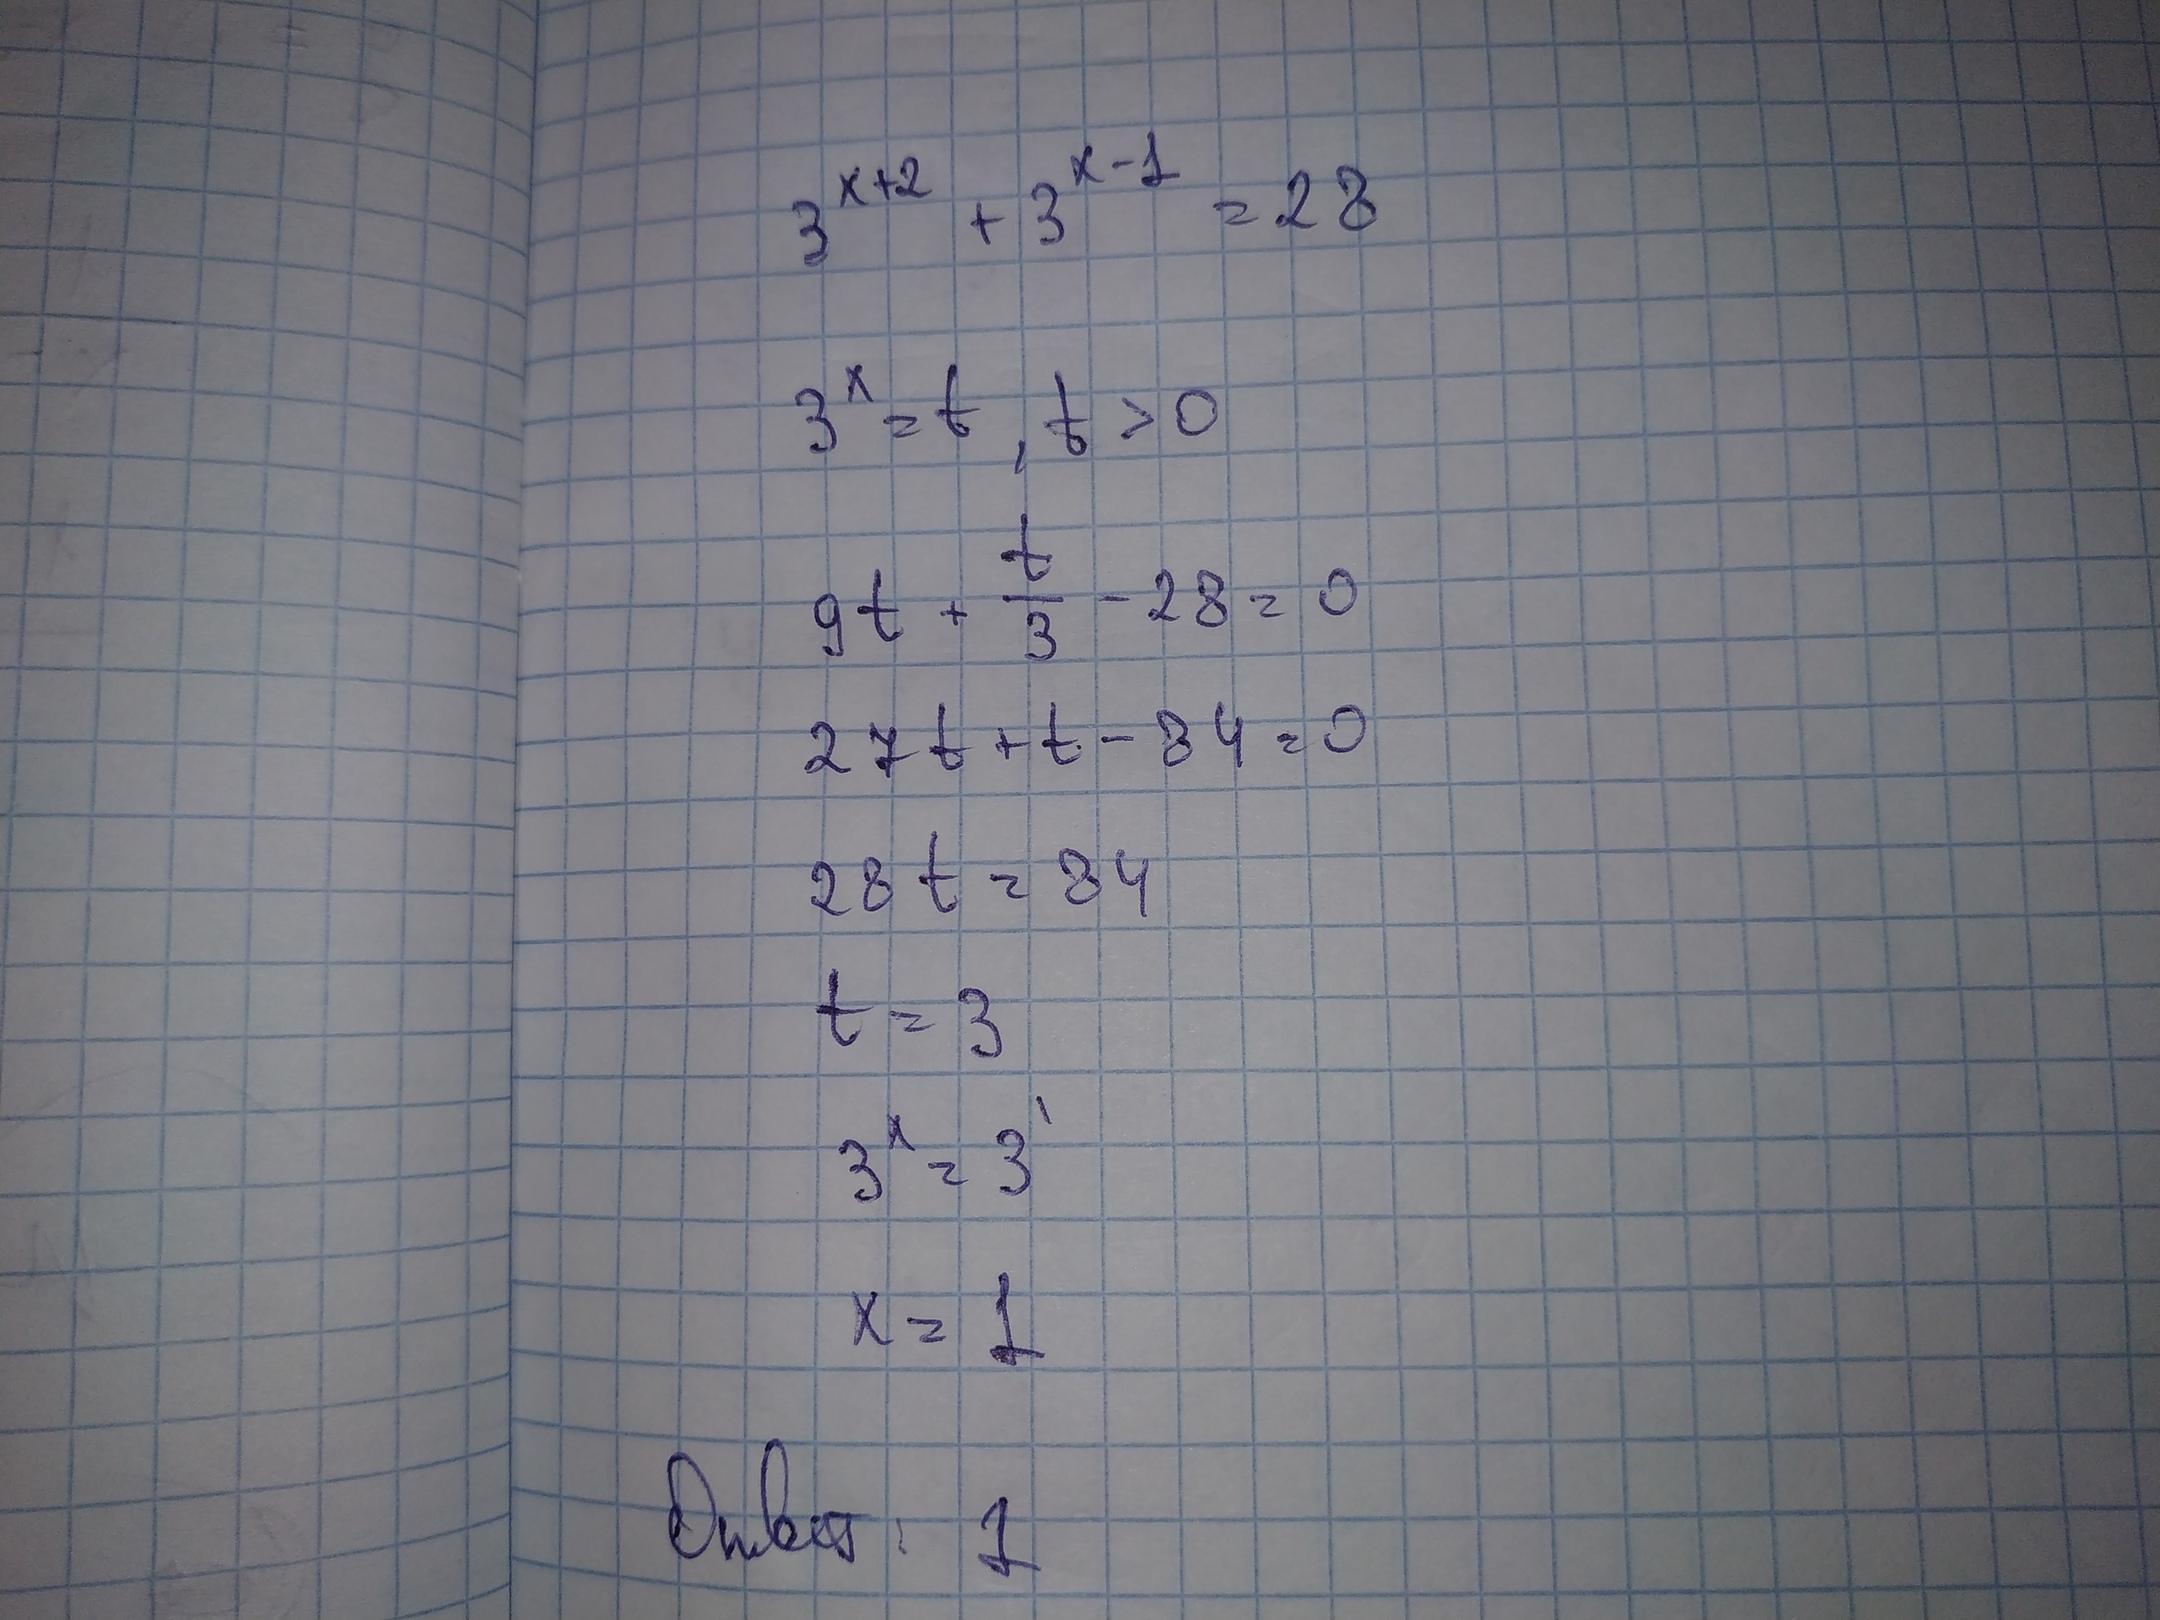 3^{x+2} + 3^{x-1} = 28
3^x = t, t > 0
9t + \frac{t}{3} - 28 = 0
27t + t - 84 = 0
28t = 84
t = 3
3^x = 3^1
x = 1
Ответ: 1